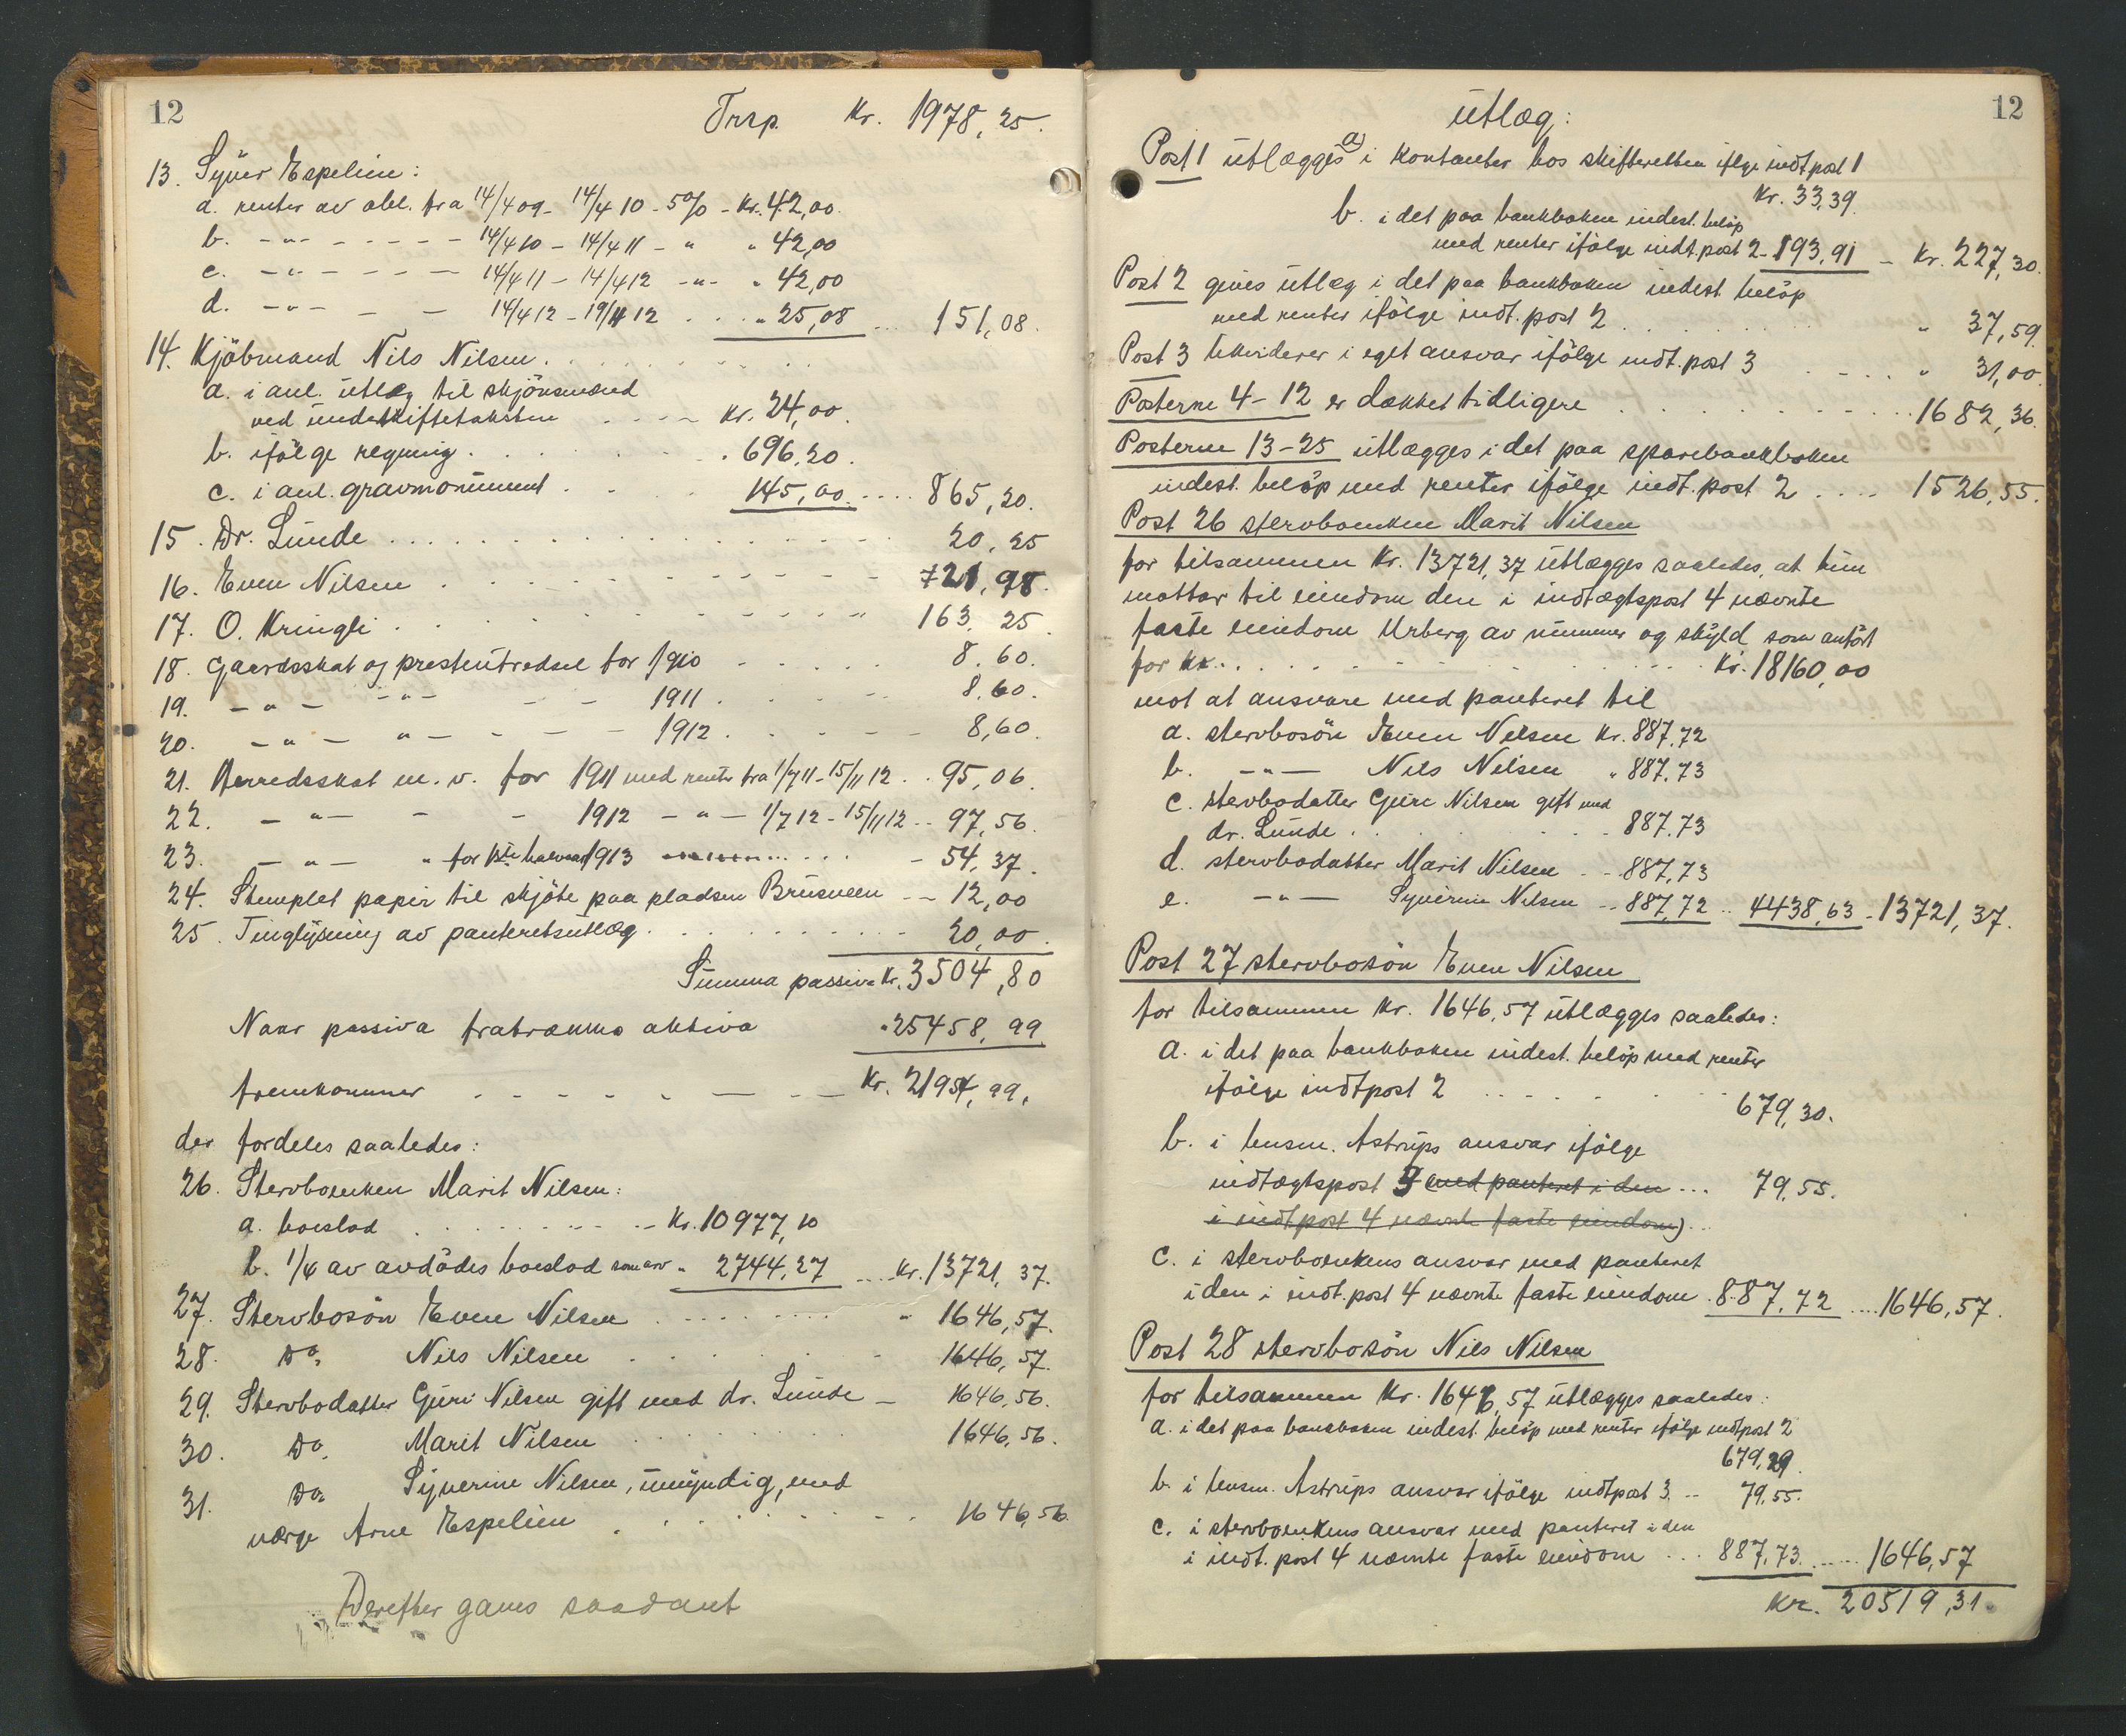 12
Trsp. Kr. 1978,25.
13. Syver Espelien:
a. renter av obl. fra 14/4 09 - 14/4 10 - 5% - Kr. 42,00.
b. - " - - - - - 14/4 10 - 14/4 11 - " " 42,00
c. - " - - - - 14/4 11 - 14/4 12 - " - " 42,00
d. - " - - - 14/4 12 - 19/11 12 . . . " 25,08 ... 151,08.
14. Kjöbmand Nils Nilsen. . . . . . .
a. i anl. utlæg til skjönsmænd
ved underskiftetaksten . . - - Kr. 24,00.
b. ifölge regning . . . . . . . 696,20.
c. i anl. gravmonument . . . . 145,00. .... 865,20.
15. Dr. Lunde . . . . . . . . . . . . 20,25
16. Even Nilsen . . . . . . . . . . . 721,98.
17. O. Kringli . . . . . . . . . . . " 163,25.
18. Gaardsskat og presteutredsel for 1910 - . . . . 8.60.
19. - " - - " - - - 1911 . . . . . 8.60.
20. - " - " - - - - 1912 . . . - - 8,60.
21. Herredsskat m. v. for 1911 med renter fra 1/7 11 - 15/11 12 . . 95,06.
22. - " - - - 1912 - " - 1/7 12 - 15/11 12 - - 97,56.
23. - " - " for 1ste halvaar 1913 . . . - 54,37.
24. Stemplet papir til skjöte paa pladsen Brusveen - - 12,00
25. Tinglysning av panteretsutlæg . . . . . . . . 20,00.
Summa passiva Kr. 3504,80
Naar passiva fratrækkes aktiva " 25458,99
fremkommer - - - - - - - - Kr. 21954,99.
der fordeles saaledes:
26. Stervboenken Marit Nilsen:
a. boeslod . . . . . . . - - Kr. 10977,10
b. 1/4 av avdödes boeslod som arv " 2744,27 .... Kr. 13721,37.
27. Stervbosön Even Nilsen . . . . . . . . " 1646,57.
28. Do. Nils Nilsen . . . . . . - 1646,57.
29. Stervbodatter Guri Nilsen gift med dr. Lunde - 1646,56.
30. Do. Marit Nilsen . . . . . . . 1646,56.
31. Do. Syverine Nilsen, umyndig, med
værge Arne Espelien . . . . . . . . 1646,56.
Derefter gaves saadant
12
utlæg:
Post 1 utlægges a) i kontanter hos skifteretten ifölge indt.post 1
Kr. 33,39.
b. i det paa bankboken indest. belöp
med renter ifölge indt.post 2 - 193,91 - Kr. 227,30.
Post 2 gives utlæg i det paa bankboken indest. belöp
med renter ifölge indt. post 2 . . . . . . . " 37,59.
Post 3 likviderer i eget ansvar ifölge indt. post 3 . . . . " 31,00.
Posterne 4 - 12 er dækket tidligere . . . . . . . . . . 1682,36.
Posterne 13 - 25 utlægges i det paa sparebankboken
indest. belöp med renter ifölge indt. post 2 . . . . 1526,55.
Post 26 stervboenken Marit Nilsen
for tilsammen Kr. 13721,37 utlægges saaledes, at hun
mottar til eiendom den i indtægtspost 4 nævnte
faste eiendom Urberg av nummer og skyld som anfört
for kr. . . . . . . . . . . . . Kr. 18160,00
mot at ansvare med panteret til
a. stervbosön Even Nilsen Kr. 887,72
b. - " - Nils Nilsen " 887,73
c. stervbodatter Guri Nilsen gift med
dr. Lunde . . . . . . . - 887,73
d. stervbodatter Marit Nilsen - - 887,73
e. - " - Syverine Nilsen - - 887,72 .. 4438,63 - 13721,37.
Post 27 stervbosön Even Nilsen
for tilsammen Kr. 1646,57 utlægges saaledes:
a. i det paa bankboken indest. belöp med renter
ifölge indtpost 2 . . . . . . . 679,30.
b. i lensm. Astrups ansvar ifölge
indtægtspost 3 (med panteret i den ... 79,55.
i indt post 4 nævnte faste eiendom) ...
c. i stervboenkens ansvar med panteret
i den i indt. post 4 nævnte faste eiendom . 887,72 .... 1646,57.
Post 28 stervbosön Nils Nilsen
for tilsammen Kr. 1646,57 utlægges saaledes:
a. i det paa bankboken indest. belöp med renter ifölge indtpost 2
679,29.
b. i lensm. Astrups ansvar ifölge indtpost 3. - - 79,55.
c. i stervboenkens ansvar med panteret i den
i indt. post 4 nævnte faste eiendom . . . 887,73 ...... 1646,57
Kr. 20519,31.